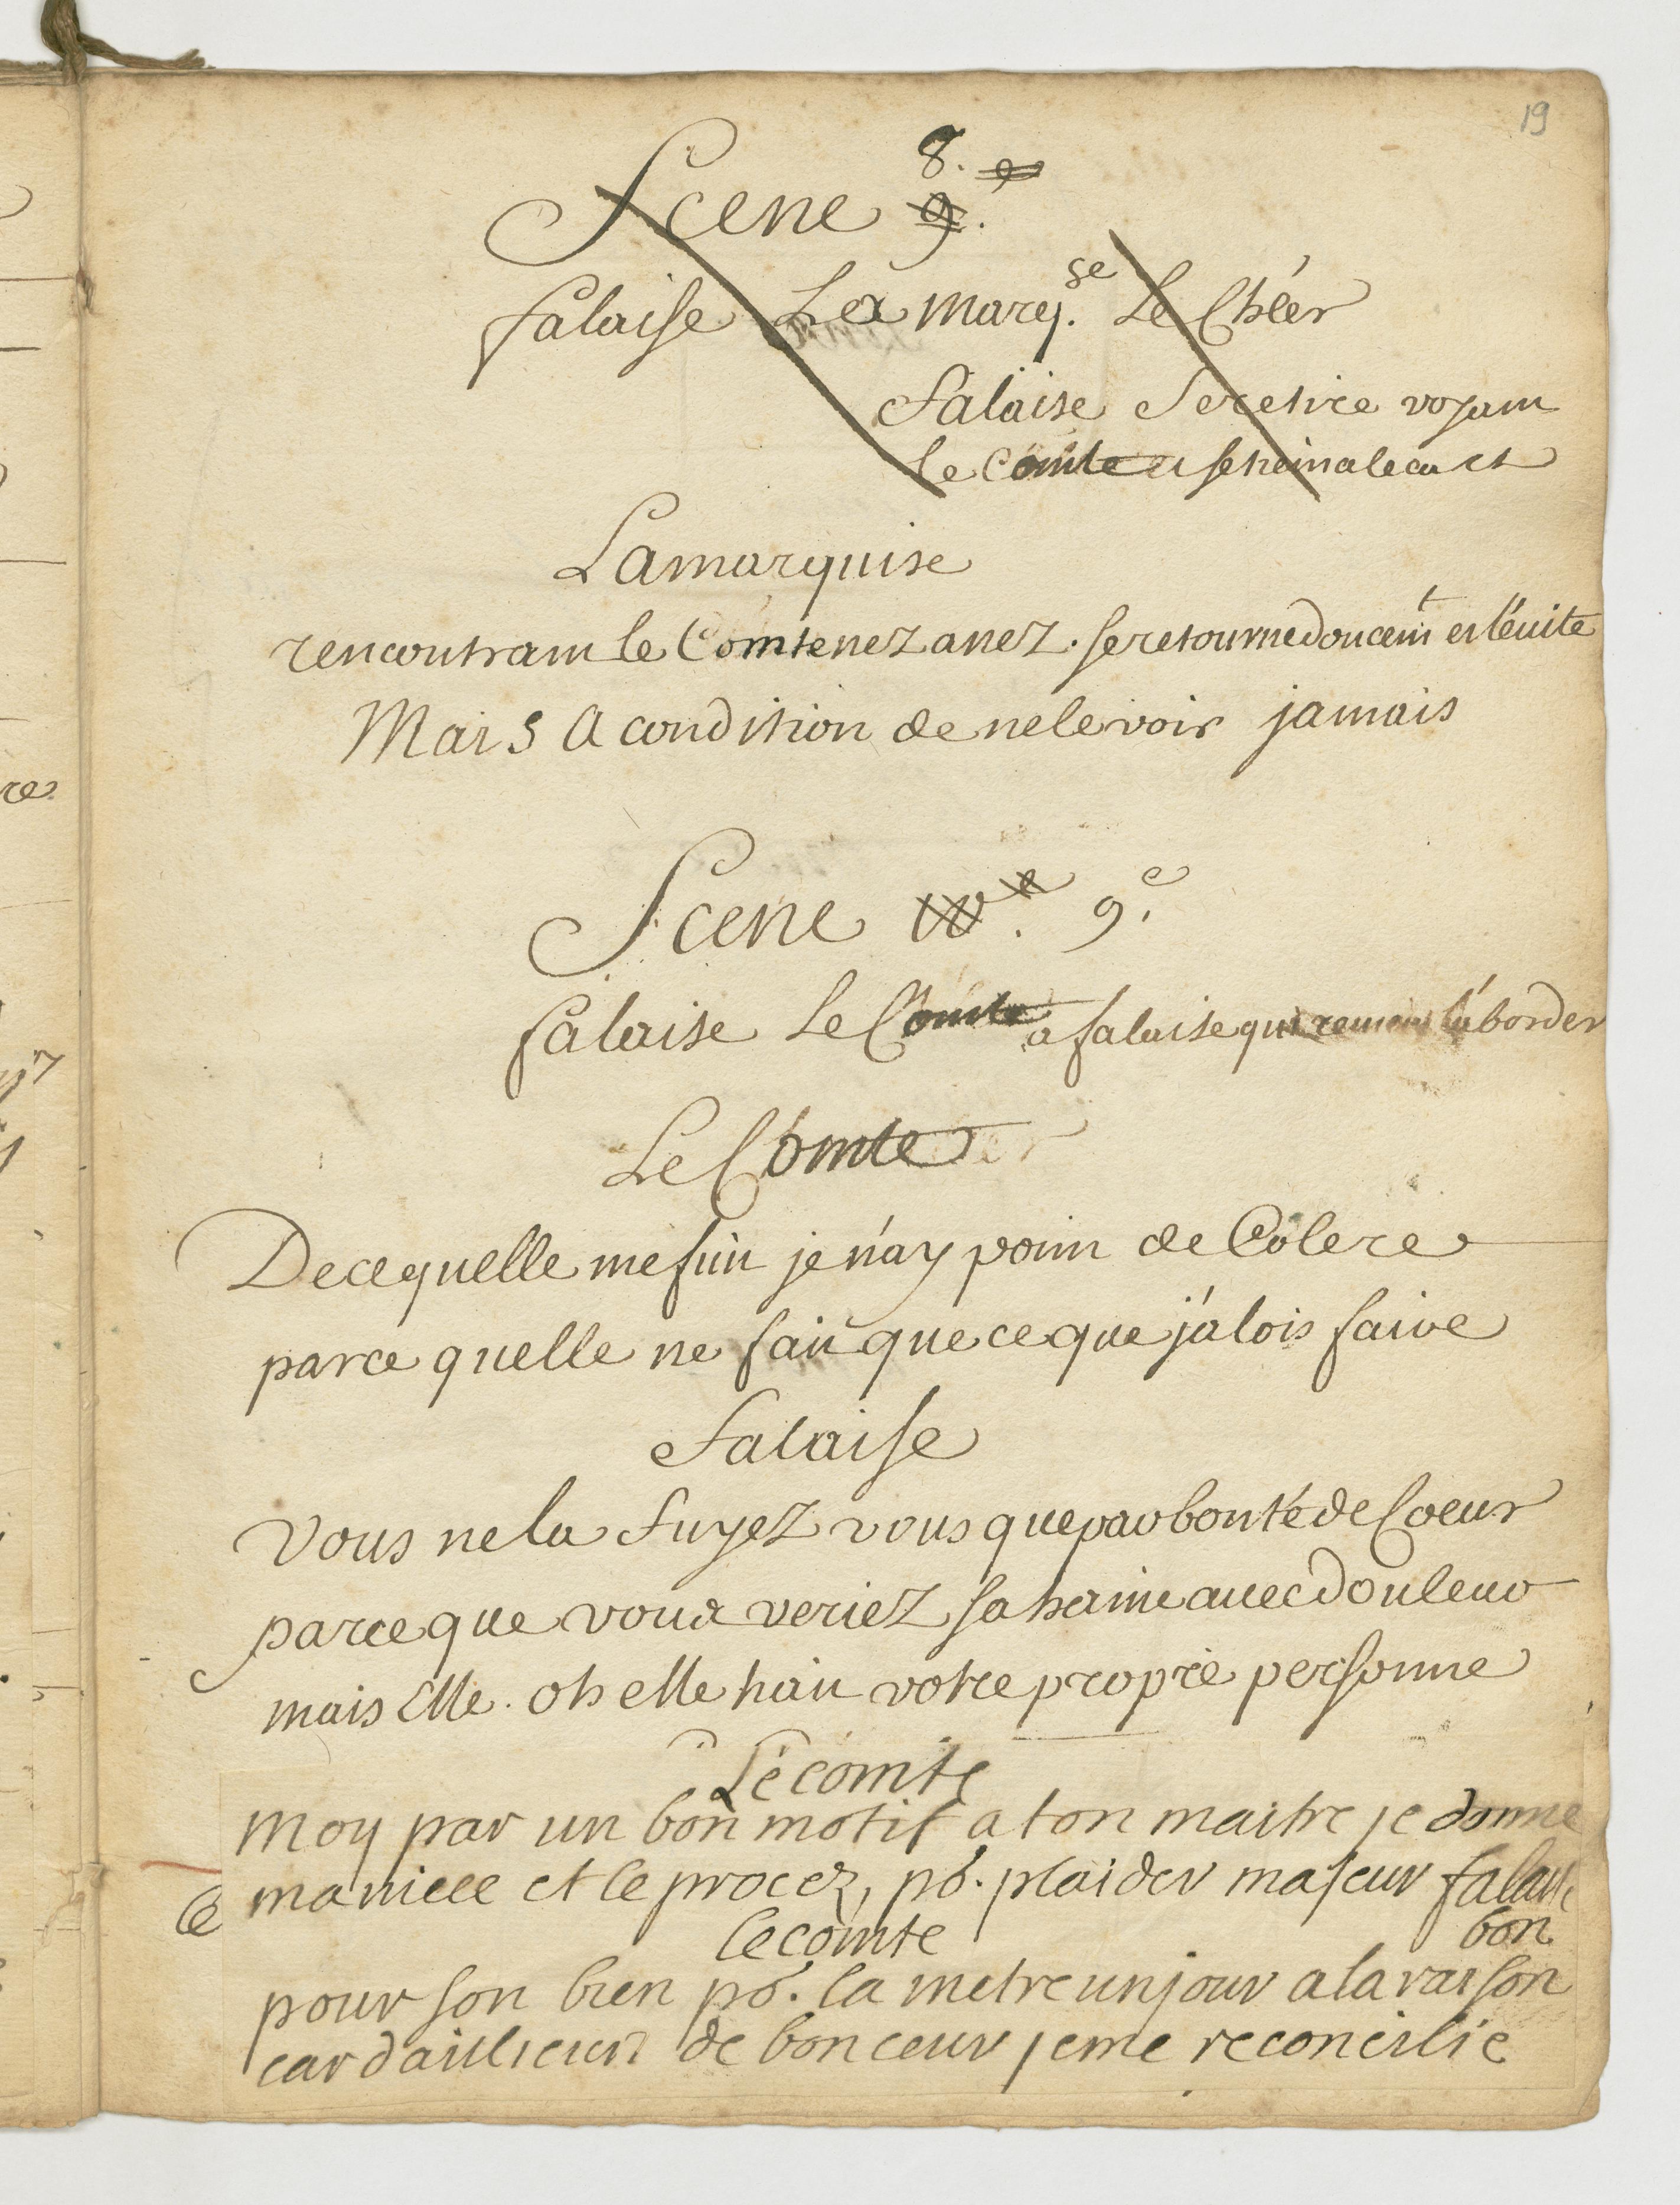 19
Scene 9. 8. e
falaise La Marq.se Le Chẽer
falaise Se retire voyant
le Comte et se tient a lecart
La marquise
rencontrant le Comte nez a nez. se retourne doucemt et l'évite
Mais a condition de ne le voir jamais
Scene 10e. 9e.
falaise Le Comte a falaise qui revient l'aborder
Le Comte
De ce quelle me fuit je n'ay point de Colere
parce quelle ne fait que ce que j'alois faire
falaise
Vous ne la fuyez vous que par bonté de Coeur
parce que vous veriez sa haine avec douleur
mais Elle. oh elle hait votre propre personne
Le comte
moy par un bon motif a ton maitre je donne
le ma niece et le procez, pr. plaider majeur falaise
le comte bon
pour son bien pr. la metre un jour a la raison
car dailleurs de bon ceur je me reconcilie